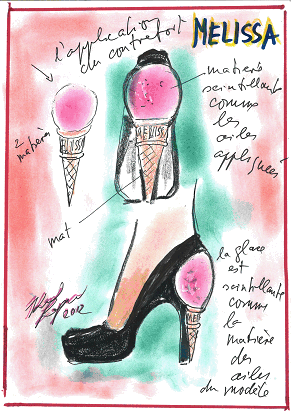 l'application
du contrefort
MELISSA
2
matières
matière
scintillante
comme
les
ailes
appliquées
MELISSA
MELISSA
mat
la glace
est
scintillante
comme
la
matière
des
ailes
du modèle
2012
MELISSA